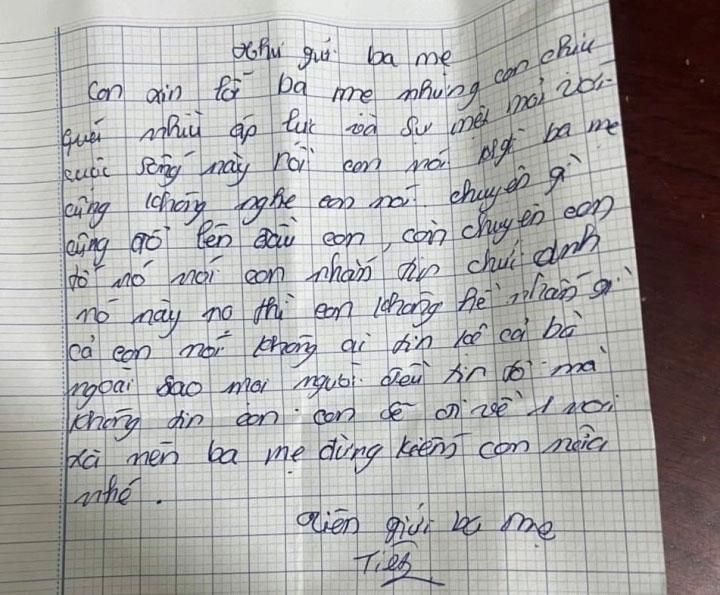 Thư gửi ba mẹ
Con xin lỗi ba mẹ nhưng con chịu
quá nhiều áp lực và sự mệt mỏi với
cuộc sống này rồi con nói gì ba mẹ
cũng không nghe con nói chuyện gì
cũng đổ lên đầu con, còn chuyện con
nó nói con nhắn tin chửi anh
nó này nọ thì con không hề nhắn gì
cả con nói không ai tin kể cả bà
ngoại sao mọi người đều tin mà
không tin con. con sẽ đi về 1 nơi
xa nên ba mẹ đừng kiếm con nữa
nhé.
gửi ba mẹ